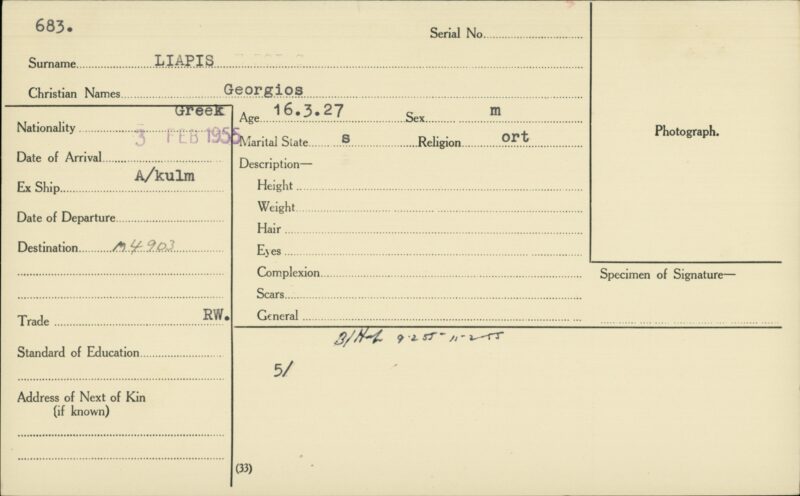 683.
Serial No.
Surname LIAPIS
Christian Names Georgios
Nationality Greek
Age 16.3.27 Sex m
Date of Arrival 3 FEB 1955
Marital State s Religion ort
Photograph.
Ex Ship A/kulm
Description—
Height
Date of Departure
Weight
Hair
Destination M4903
Eyes
Complexion
Specimen of Signature—
Scars
Trade RW.
General
9-2-55 - 11-2-55
Standard of Education
5/
Address of Next of Kin
(if known)
(33)